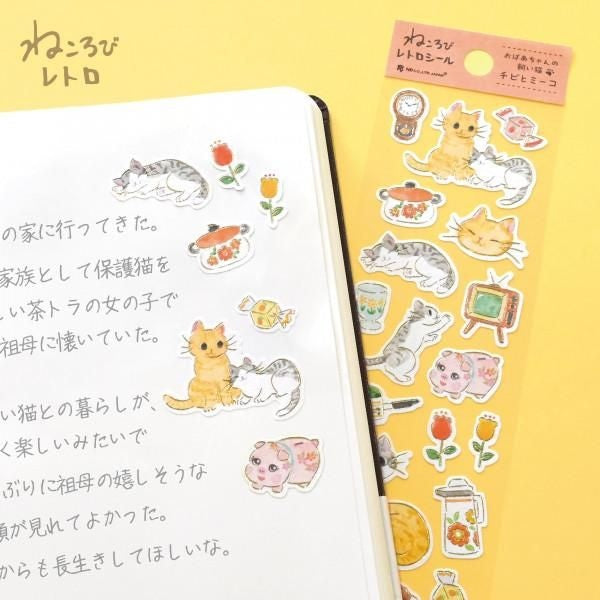 ねころび
レトロ
の家に行ってきた。
家族として保護猫を
しい茶トラの女の子で
祖母に懐いていた。
い猫との暮らしが、
く楽しいみたいで
ぶりに祖母の嬉しそうな
顔が見れてよかった。
からも長生きしてほしいな。
ねころび
レトロシール
おばあちゃんの
飼い猫
チビとミーコ